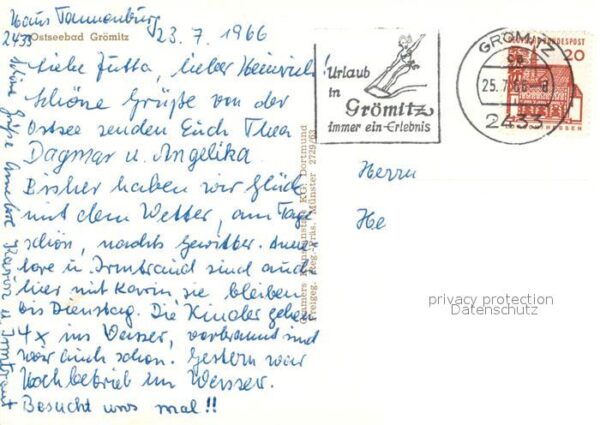 Haus Tannenburg
2433 Ostseebad Grömitz
23.7.1966
Liebe Jutta, lieber Heinrich!
Schöne Grüße von der
Ostsee senden Euch Thea
Dagmar u. Angelika.
Bisher haben wir Glück
mit dem Wetter, am Tage
schön, nachts Gewitter. Anne-
lore u. Irmtraud sind auch
hier mit Karin, sie bleiben
bis Dienstag. Die Kinder gehen
4x ins Wasser, verbrannt sind
wir auch schon. Gestern war
Hochbetrieb im Wasser.
Besucht uns mal!!
Schöne Grüße Annelore Karin u. Irmtraut
Cramers Kunstanstalt KG, Dortmund
Freigeg. Reg.-Präs. Münster 2729/63
Urlaub
in
Grömitz
immer ein Erlebnis
GRÖMITZ
25.7.66-8
2433
DEUTSCHE BUNDESPOST
20
HESSEN
Herrn
He
privacy protection
Datenschutz